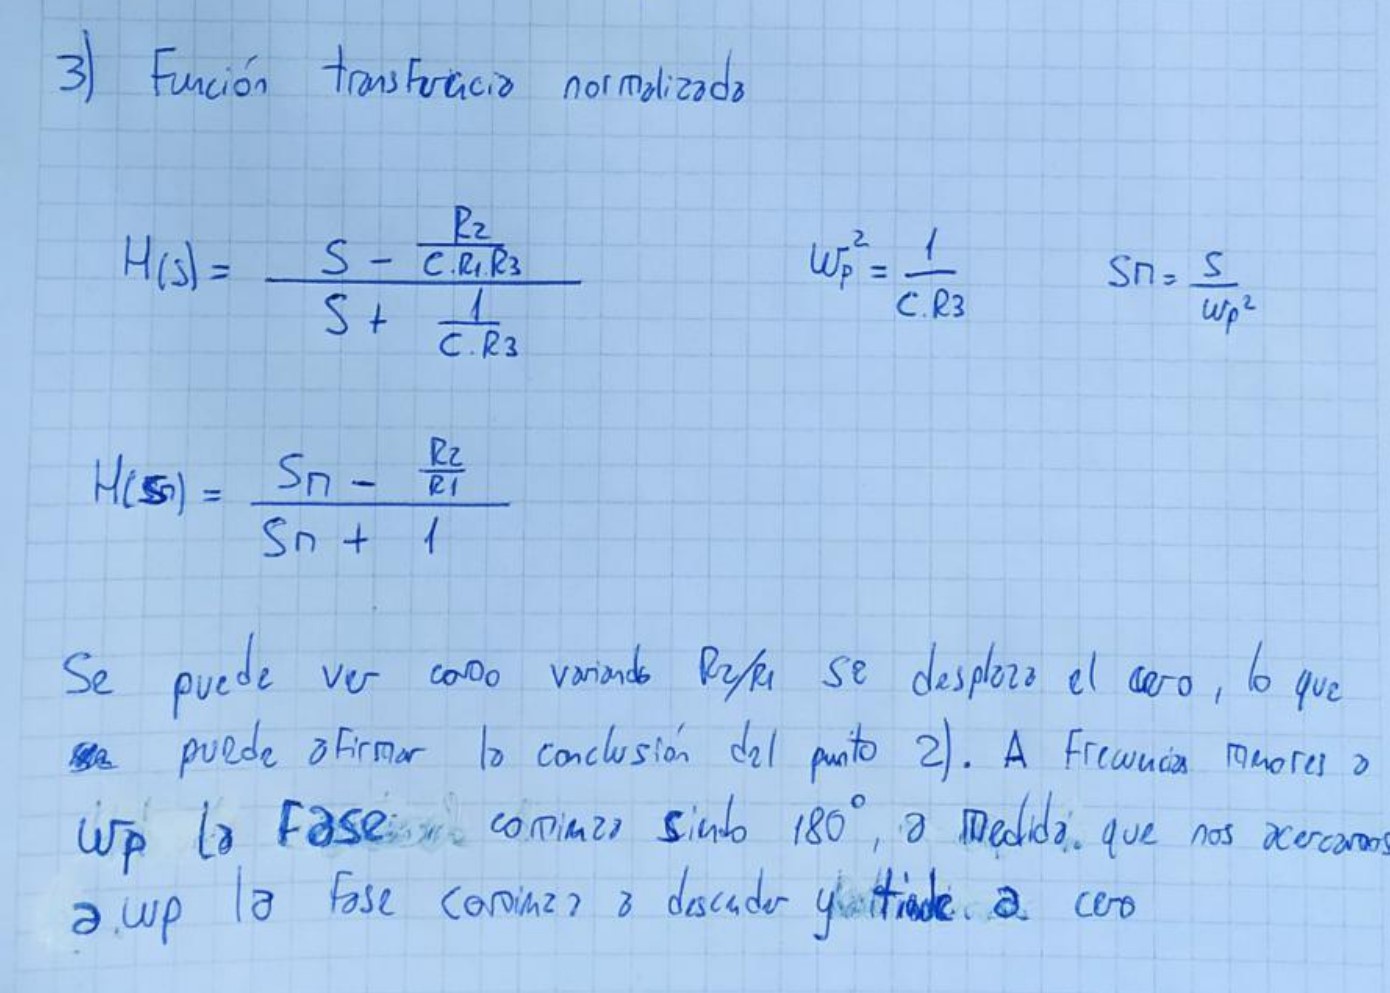 3) Función transferencia normalizada
H(s) = (S - R2/(C.R1.R3)) / (S + 1/(C.R3))   Wp² = 1/(C.R3)   Sn = S/Wp²
H(Sn) = (Sn - R2/R1) / (Sn + 1)
Se puede ver como variando R2/R1 se desplaza el cero, lo que
puede afirmar la conclusión del punto 2). A Frecuencias menores a
Wp la Fase comienza siendo 180°, a medida que nos acercamos
a wp la fase comienza a descender y tiende a cero